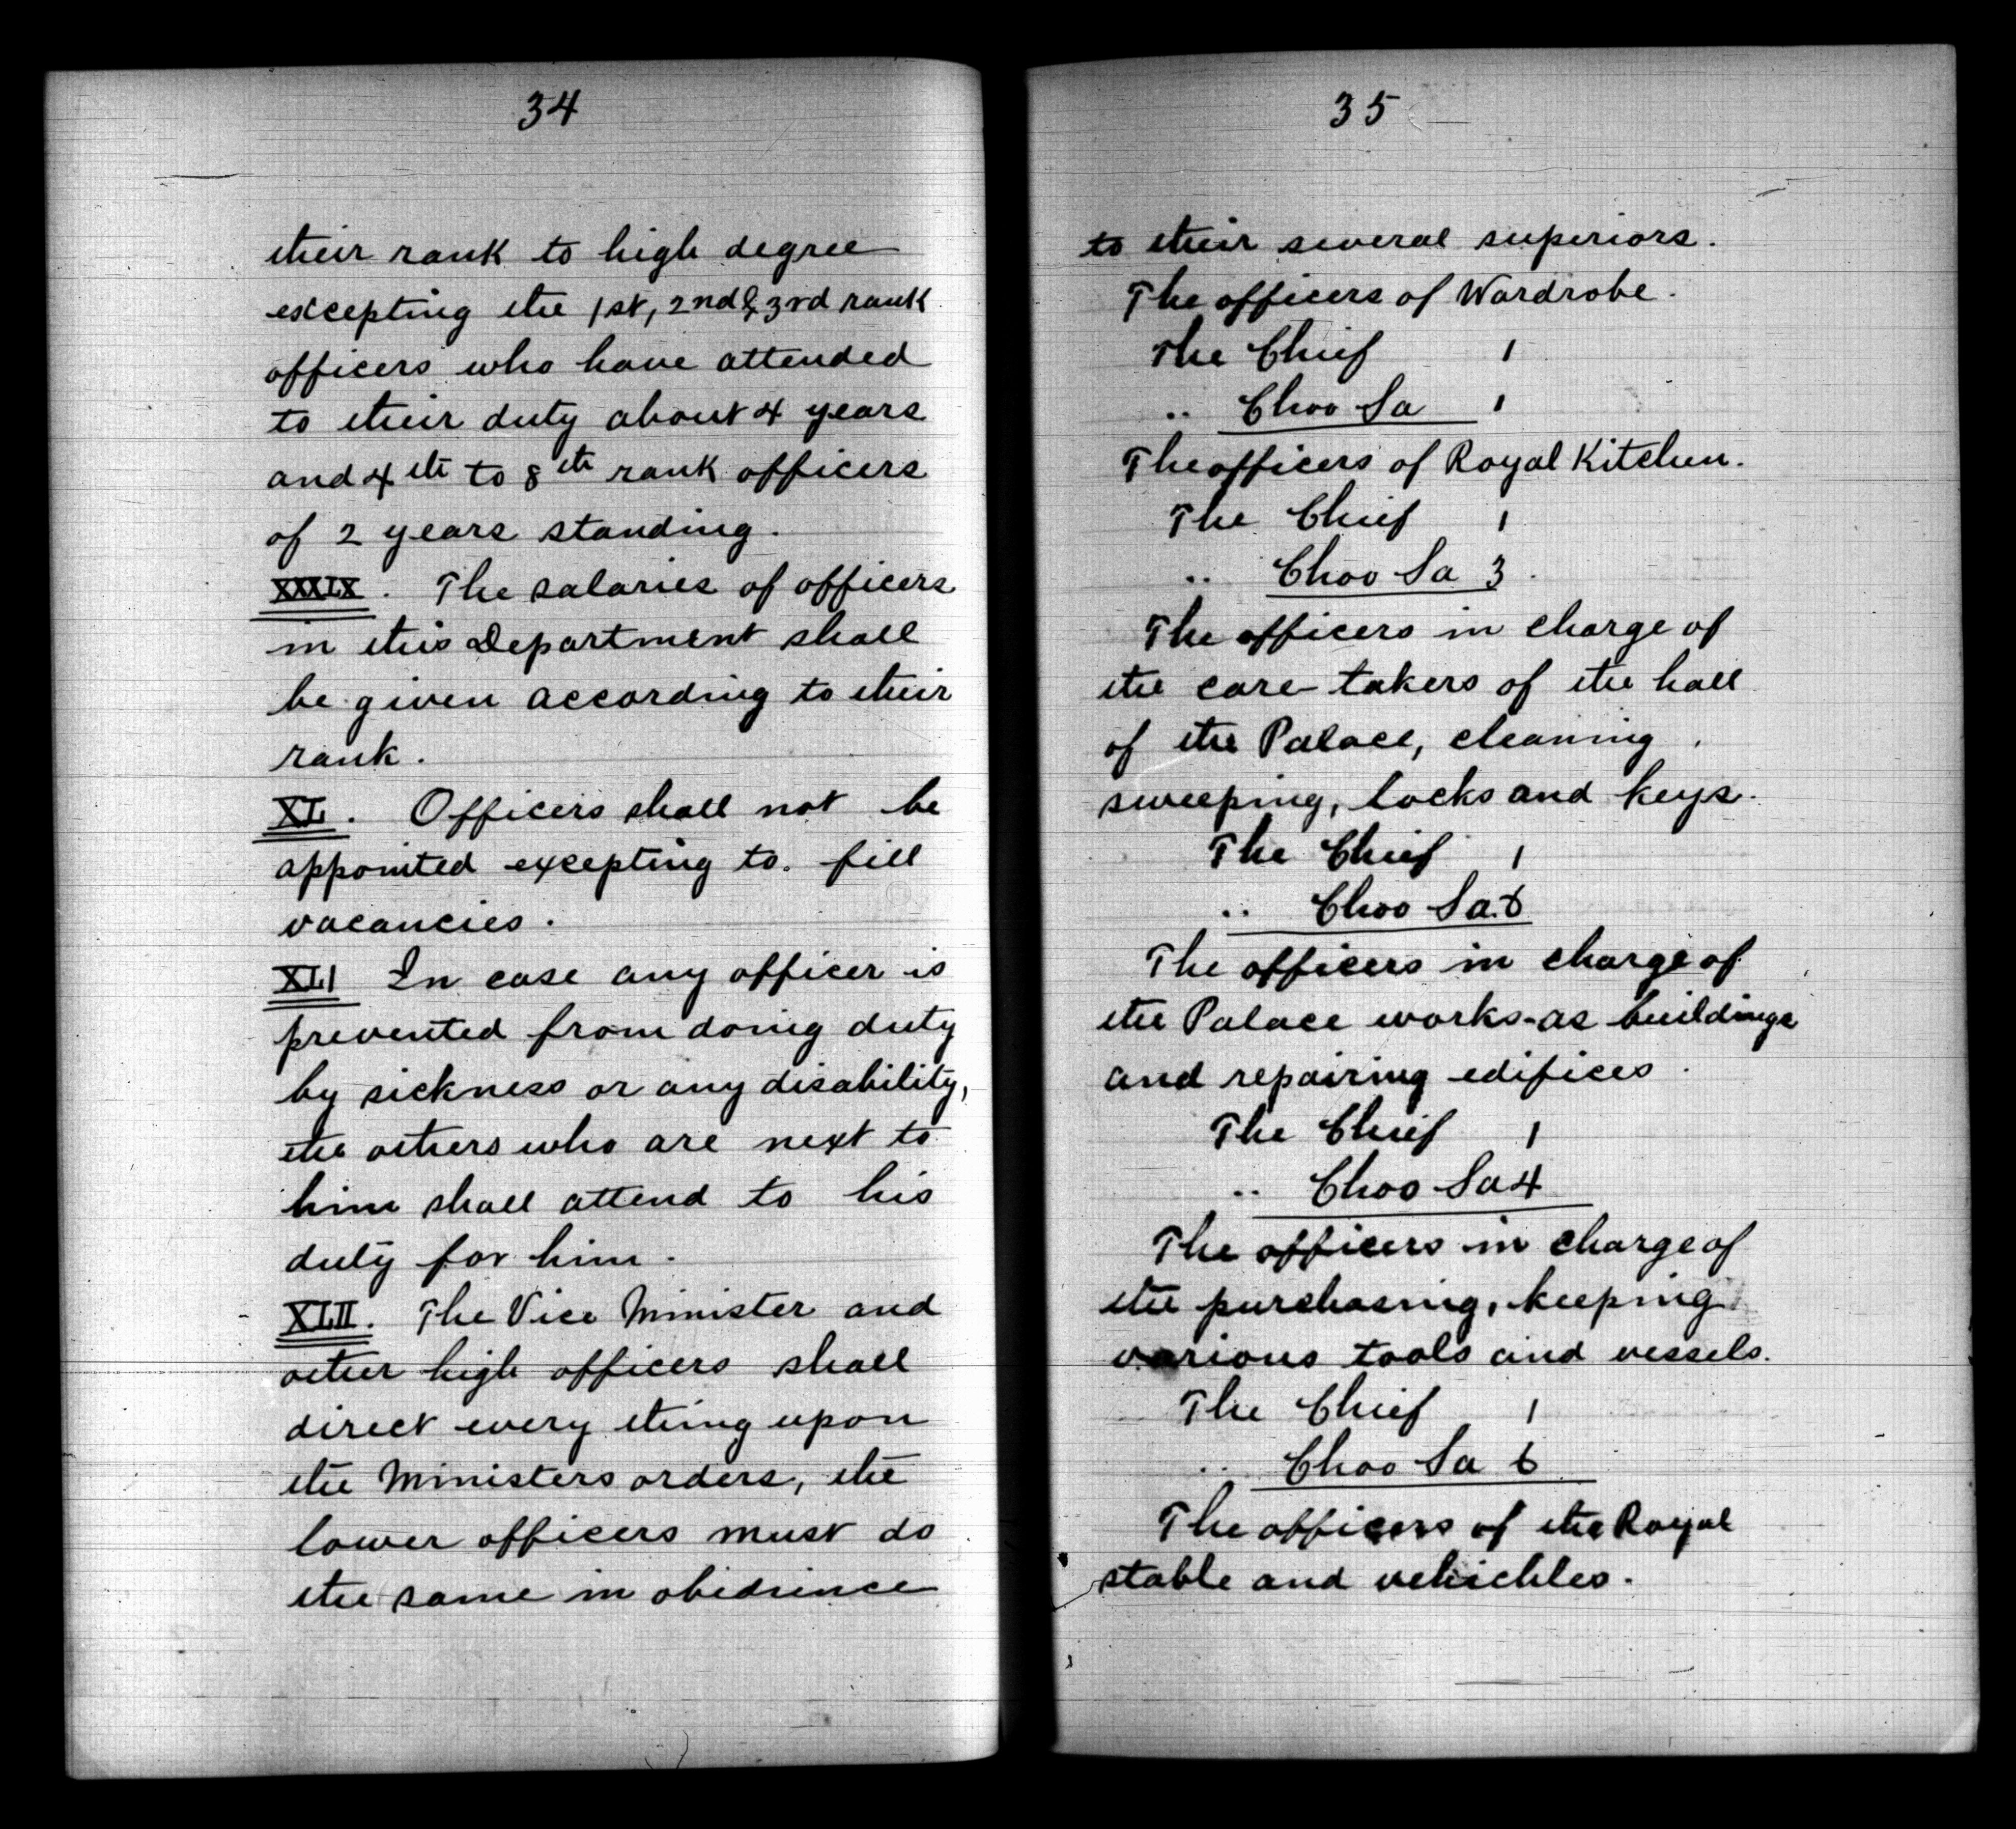 34
their rank to high degree
excepting the 1st, 2nd & 3rd rank
officers who have attended
to their duty about 4 years
and 4th to 8th rank officers
of 2 years standing.
XXXIX. The salaries of officers
in this Department shall
be given according to their
rank.
XL. Officers shall not be
appointed excepting to. fill
vacancies.
XLI In case any officer is
prevented from doing duty
by sickness or any disability,
the others who are next to
him shall attend to his
duty for him.
XLII. The Vice Minister and
other high officers shall
direct every thing upon
the Ministers orders, the
lower officers must do
the same in obedience
35
to their several superiors.
The officers of Wardrobe.
The Chief 1
.. Choo Sa 1
The officers of Royal Kitchen.
The Chief 1
.. Choo Sa 3.
The officers in charge of
the care takers of the hall
of the Palace, cleaning,
sweeping, locks and keys.
The Chief 1
.. Choo Sa.
The officers in charge of
the Palace works-as buildings
and repairing edifices.
The Chief 1
.. Choo Sa 4
The officers in charge of
the purchasing, keeping
various tools and vessels.
The Chief 1
.. Choo Sa 6
The officers of the Royal
stable and vehichles.